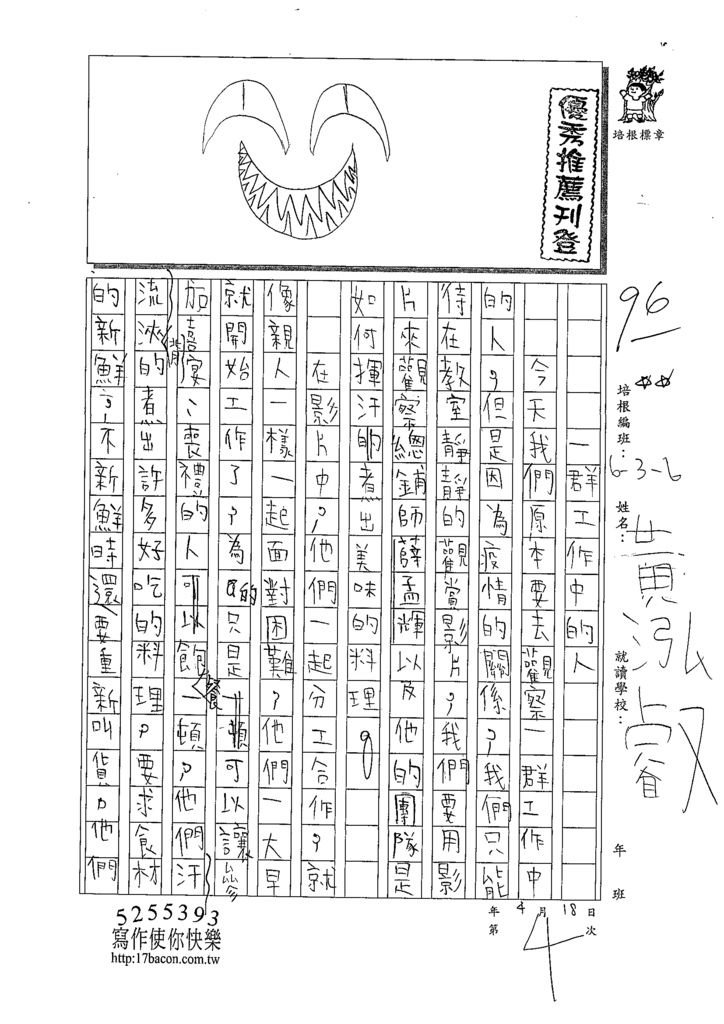 優秀推薦刊登
培根標章
96
培根編班：6-3-6
姓名：黃泓叡
就讀學校：
年 班
年 4 月 18 日
第 4 次
一群工作中的人
今天我們原本要去觀察一群工作中
的人，但是因為疫情的關係，我們只能
待在教室靜靜的觀賞影片，我們要用影
片來觀察總鋪師薛孟輝以及他的團隊是
如何揮汗的煮出美味的料理。
在影片中，他們一起分工合作，就
像親人一樣一起面對困難，他們一大早
就開始工作了，為的只是可以讓參
加喜宴、喪禮的人可以飽餐一頓，他們汗
流浹背的煮出許多好吃的料理，要求食材
的新鮮，不新鮮時還要重新叫貨，他們
5255393
寫作使你快樂
http:17bacon.com.tw